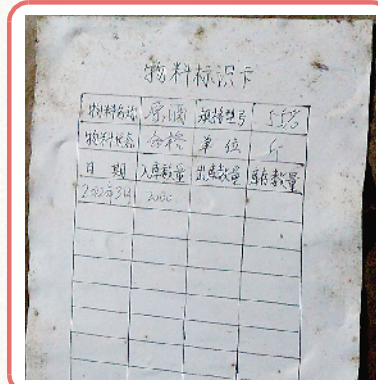 物料标识卡
物料名称 原酒 规格型号 55%
物料状态 合格 单位 斤
日期 入库数量 出库数量 剩存数量
2022年3月 2000